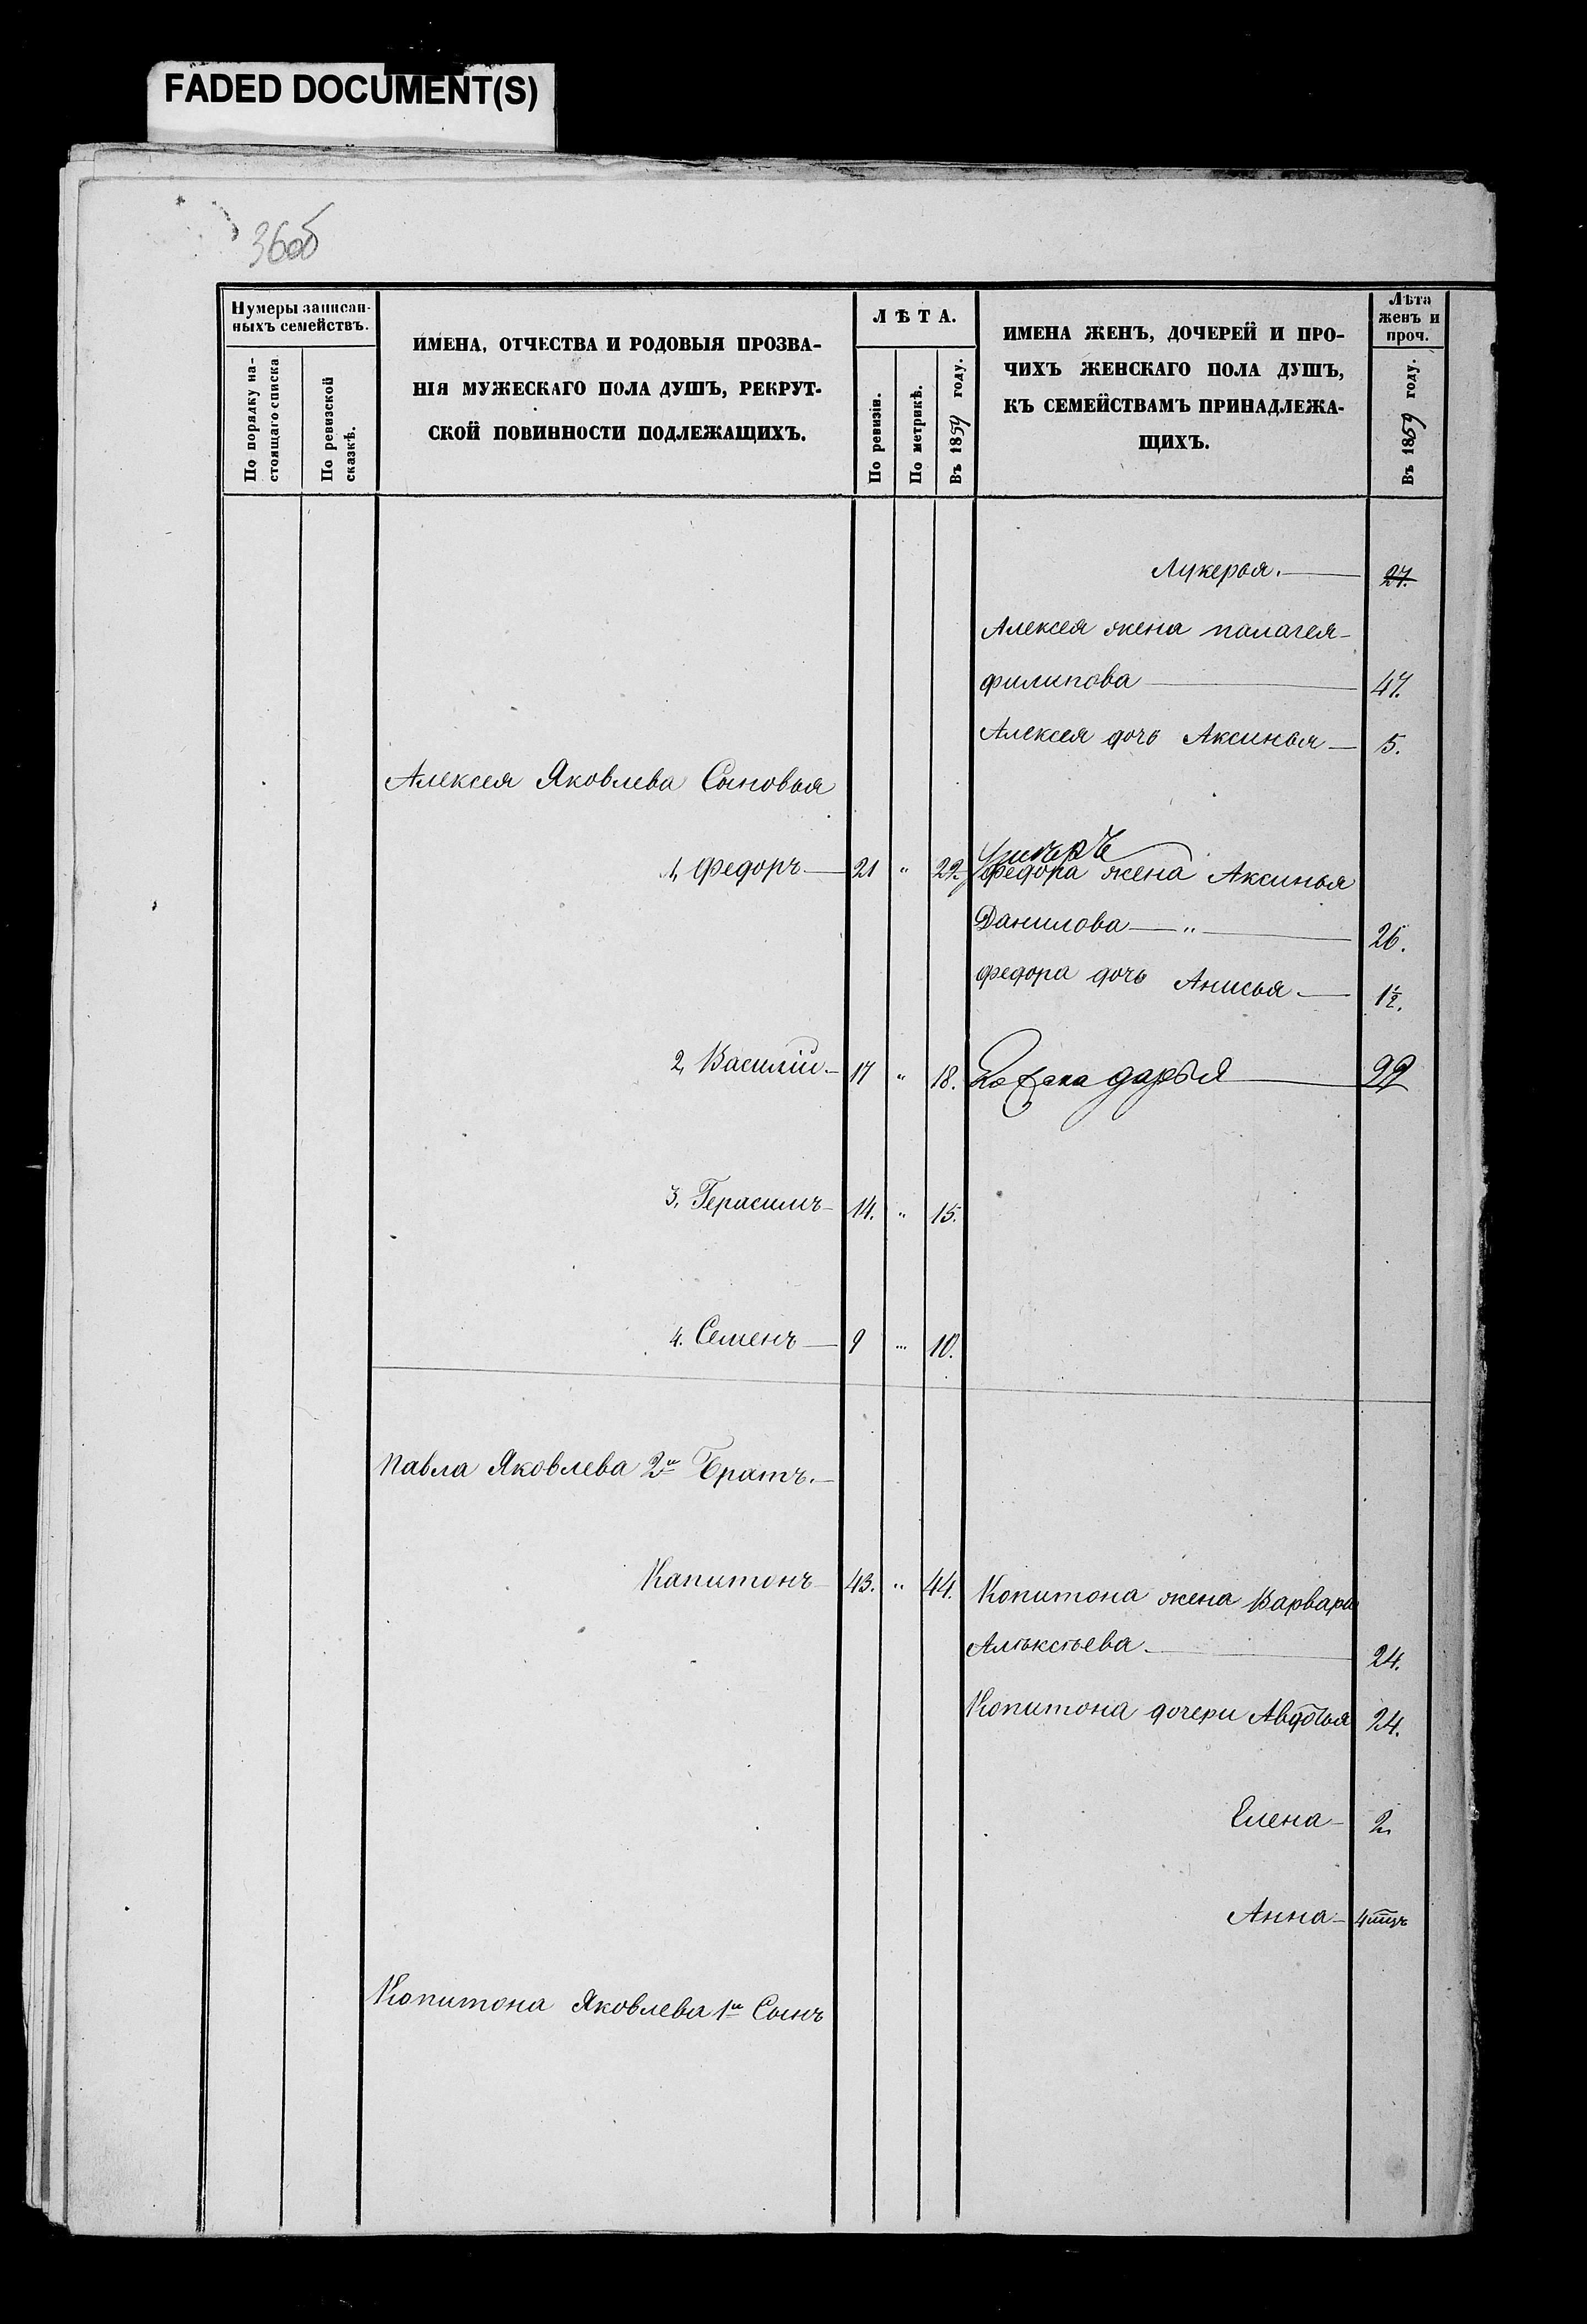 FADED DOCUMENT(S)
36об
Нумеры записан-
ныхъ семействъ.
По порядку на-
стоящаго списка
По ревизской
сказкѣ.
ИМЕНА, ОТЧЕСТВА И РОДОВЫЯ ПРОЗВА-
НІЯ МУЖЕСКАГО ПОЛА ДУШЪ, РЕКРУТ-
СКОЙ ПОВИННОСТИ ПОДЛЕЖАЩИХЪ.
ЛѢТА.
По ревизіи.
По метрикѣ.
Въ 1859 году.
ИМЕНА ЖЕНЪ, ДОЧЕРЕЙ И ПРО-
ЧИХЪ ЖЕНСКАГО ПОЛА ДУШЪ,
КЪ СЕМЕЙСТВАМЪ ПРИНАДЛЕЖА-
ЩИХЪ.
Лѣта
женъ и
проч.
Въ 1859 году.
Лукерья. — 27.
Алексея жена палагея —
филипова — 47.
Алексея дочь Аксинья — 5.
Алексея Яковлева Сыновья
1, Федоръ — 21 " 22.
федора жена Аксинья
Данилова — " — 26.
федора дочь Анисья — 1½.
2, Василій — 17 " 18. дарья — 22
3, Герасимъ — 14. " 15.
4. Семенъ — 9 " 10.
павла Яковлева 2й Братъ. —
Капитонъ — 43. " 44. Копитона жена Варвара
Алѣксѣева — 24.
Копитона дочери Авдотья 24.
Елена — 2.
Анна — 4
Копитона Яковлева 1й Сынъ